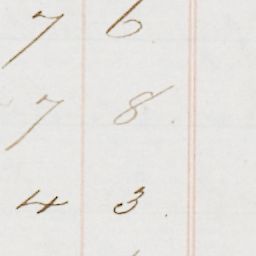 7 6
7 8.
4 3.